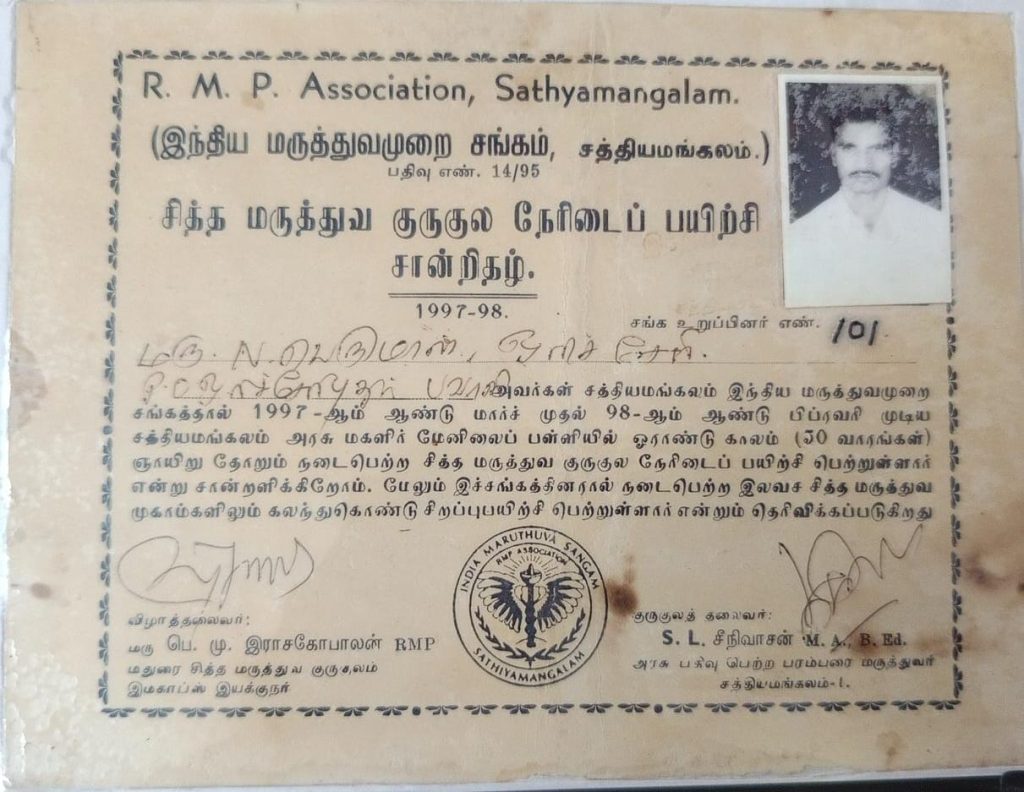 R. M. P. Association, Sathyamangalam.
(இந்திய மருத்துவமுறை சங்கம், சத்தியமங்கலம்.)
பதிவு எண். 14/95
சித்த மருத்துவ குருகுல நேரிடைப் பயிற்சி
சான்றிதழ்.
1997-98.
சங்க உறுப்பினர் எண். 101
மரு. N. பெருமாள்,
அவர்கள் சத்தியமங்கலம் இந்திய மருத்துவமுறை
சங்கத்தால் 1997-ஆம் ஆண்டு மார்ச் முதல் 98-ஆம் ஆண்டு பிப்ரவரி முடிய
சத்தியமங்கலம் அரசு மகளிர் மேனிலைப் பள்ளியில் ஓராண்டு காலம் (50 வாரங்கள்)
ஞாயிறு தோறும் நடைபெற்ற சித்த மருத்துவ குருகுல நேரிடைப் பயிற்சி பெற்றுள்ளார்
என்று சான்றளிக்கிறோம். மேலும் இச்சங்கத்தினரால் நடைபெற்ற இலவச சித்த மருத்துவ
முகாம்களிலும் கலந்துகொண்டு சிறப்புபயிற்சி பெற்றுள்ளார் என்றும் தெரிவிக்கப்படுகிறது
INDIA MARUTHUVA SANGAM
RMP ASSOCIATION
SATHIYAMANGALAM
விழாத்தலைவர்:
மரு பெ. மு. இராசகோபாலன் RMP
மதுரை சித்த மருத்துவ குருகுலம்
இமகாப்ஸ் இயக்குநர்
குருகுலத் தலைவர்:
S. L. சீநிவாசன் M. A., B. Ed.
அரசு பதிவு பெற்ற பரம்பரை மருத்துவர்
சத்தியமங்கலம்-1.